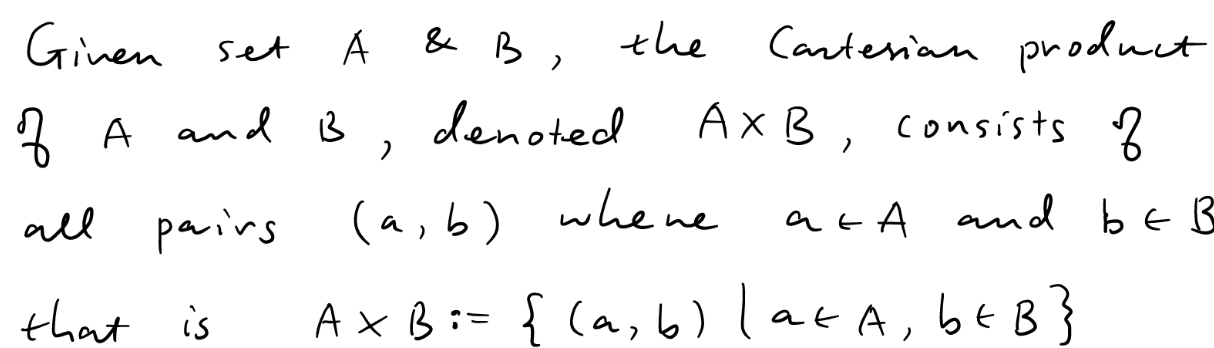 Given set A & B, the Cartesian product
of A and B, denoted A×B, consists of
all pairs (a, b) where a ∈ A and b ∈ B
that is A × B := { (a, b) | a ∈ A, b ∈ B }